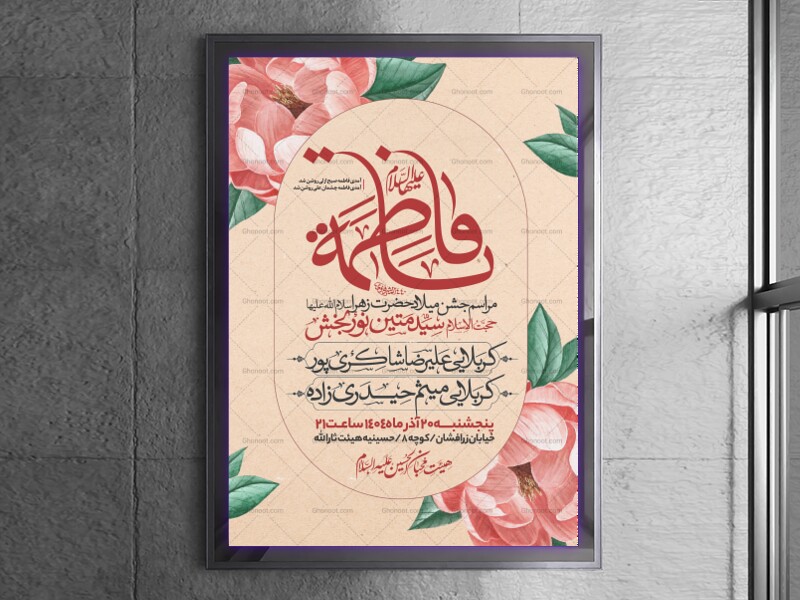 علیهاالسلام
آمدی فاطمه صبح ازلی روشن شد
آمدی فاطمه چشمان علی روشن شد
فاطمة
مراسم جشن میلاد حضرت زهرا سلام الله علیها
حجت الاسلام سید متین نوربخش
کربلایی علیرضا شاکری پور
کربلایی میثم حیدری زاده
پنجشنبه ۲۰ آذر ماه ۱۴۰۴ ساعت ۲۱
خیابان زرافشان / کوچه ۸ / حسینیه هیئت ثارالله
هیئت محبان الحسین علیه السلام
Ghonoot.com